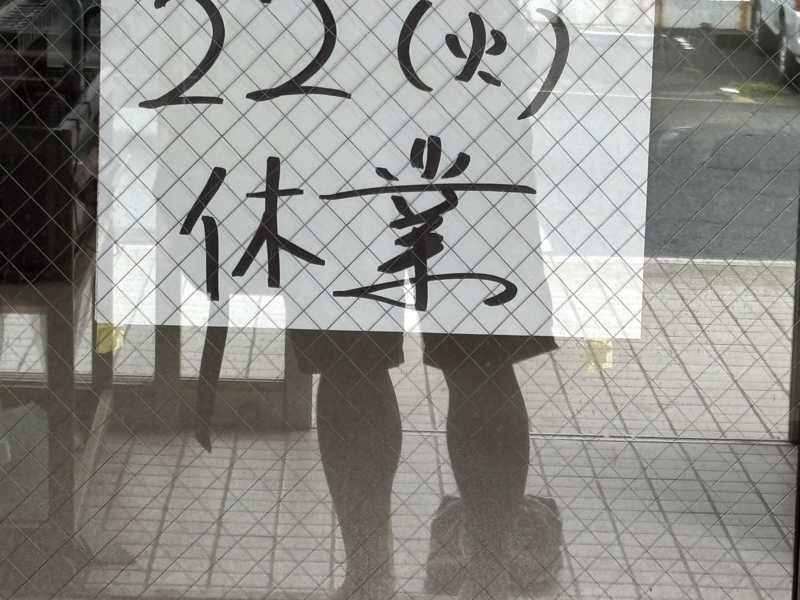 22(火)
休業